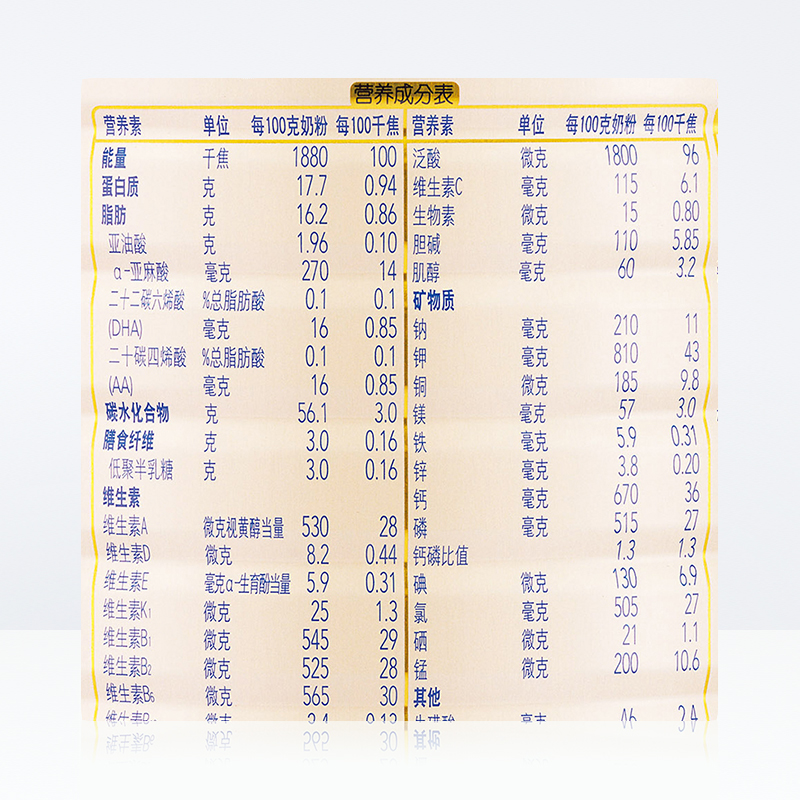 营养成分表
营养素 单位 每100克奶粉 每100千焦
能量 千焦 1880 100
蛋白质 克 17.7 0.94
脂肪 克 16.2 0.86
亚油酸 克 1.96 0.10
α-亚麻酸 毫克 270 14
二十二碳六烯酸 %总脂肪酸 0.1 0.1
(DHA) 毫克 16 0.85
二十碳四烯酸 %总脂肪酸 0.1 0.1
(AA) 毫克 16 0.85
碳水化合物 克 56.1 3.0
膳食纤维 克 3.0 0.16
低聚半乳糖 克 3.0 0.16
维生素
维生素A 微克视黄醇当量 530 28
维生素D 微克 8.2 0.44
维生素E 毫克α-生育酚当量 5.9 0.31
维生素K₁ 微克 25 1.3
维生素B₁ 微克 545 29
维生素B₂ 微克 525 28
维生素B₆ 微克 565 30
营养素 单位 每100克奶粉 每100千焦
泛酸 微克 1800 96
维生素C 毫克 115 6.1
生物素 微克 15 0.80
胆碱 毫克 110 5.85
肌醇 毫克 60 3.2
矿物质
钠 毫克 210 11
钾 毫克 810 43
铜 微克 185 9.8
镁 毫克 57 3.0
铁 毫克 5.9 0.31
锌 毫克 3.8 0.20
钙 毫克 670 36
磷 毫克 515 27
钙磷比值 1.3 1.3
碘 微克 130 6.9
氯 毫克 505 27
硒 微克 21 1.1
锰 微克 200 10.6
其他